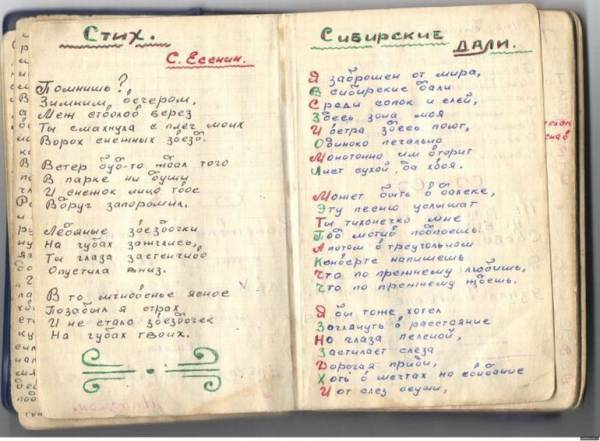 Стих.
С. Есенин.
Помнишь?
Зимним вечером,
Меж стволов берез
Ты смахнула с плеч моих
Ворох снежных звезд.
Ветер буд-то ждал того
В парке ни душу
И снежок лицо твое
Вдруг запорошил.
Ледяные звездочки
На губах зажглись,
Ты глаза застенчиво
Опустила вниз.
В то мгновенье ясное
Позабыл я страх
И не стало звездочек
На губах твоих.
Сибирские
дали.
Я заброшен от мира,
В сибирские дали
Среди сопок и елей,
Здесь зона моя
И ветра здесь поют,
Одиноко печально
Монотонно им вторит
Лист сухой, да хвоя.
Может быть в далеке,
Эту песню услышат
Ты тихонечко мне
Под мотив подпоешь.
А потом в треугольном
Конверте напишешь
Что по прежнему любишь,
Что по прежнему ждешь.
Я бы тоже хотел
Заглянуть в расстояние
Но глаза пеленой,
Застилает слеза
Дорогая приди,
Хоть в мечтах на свидание
И от слез осуши,